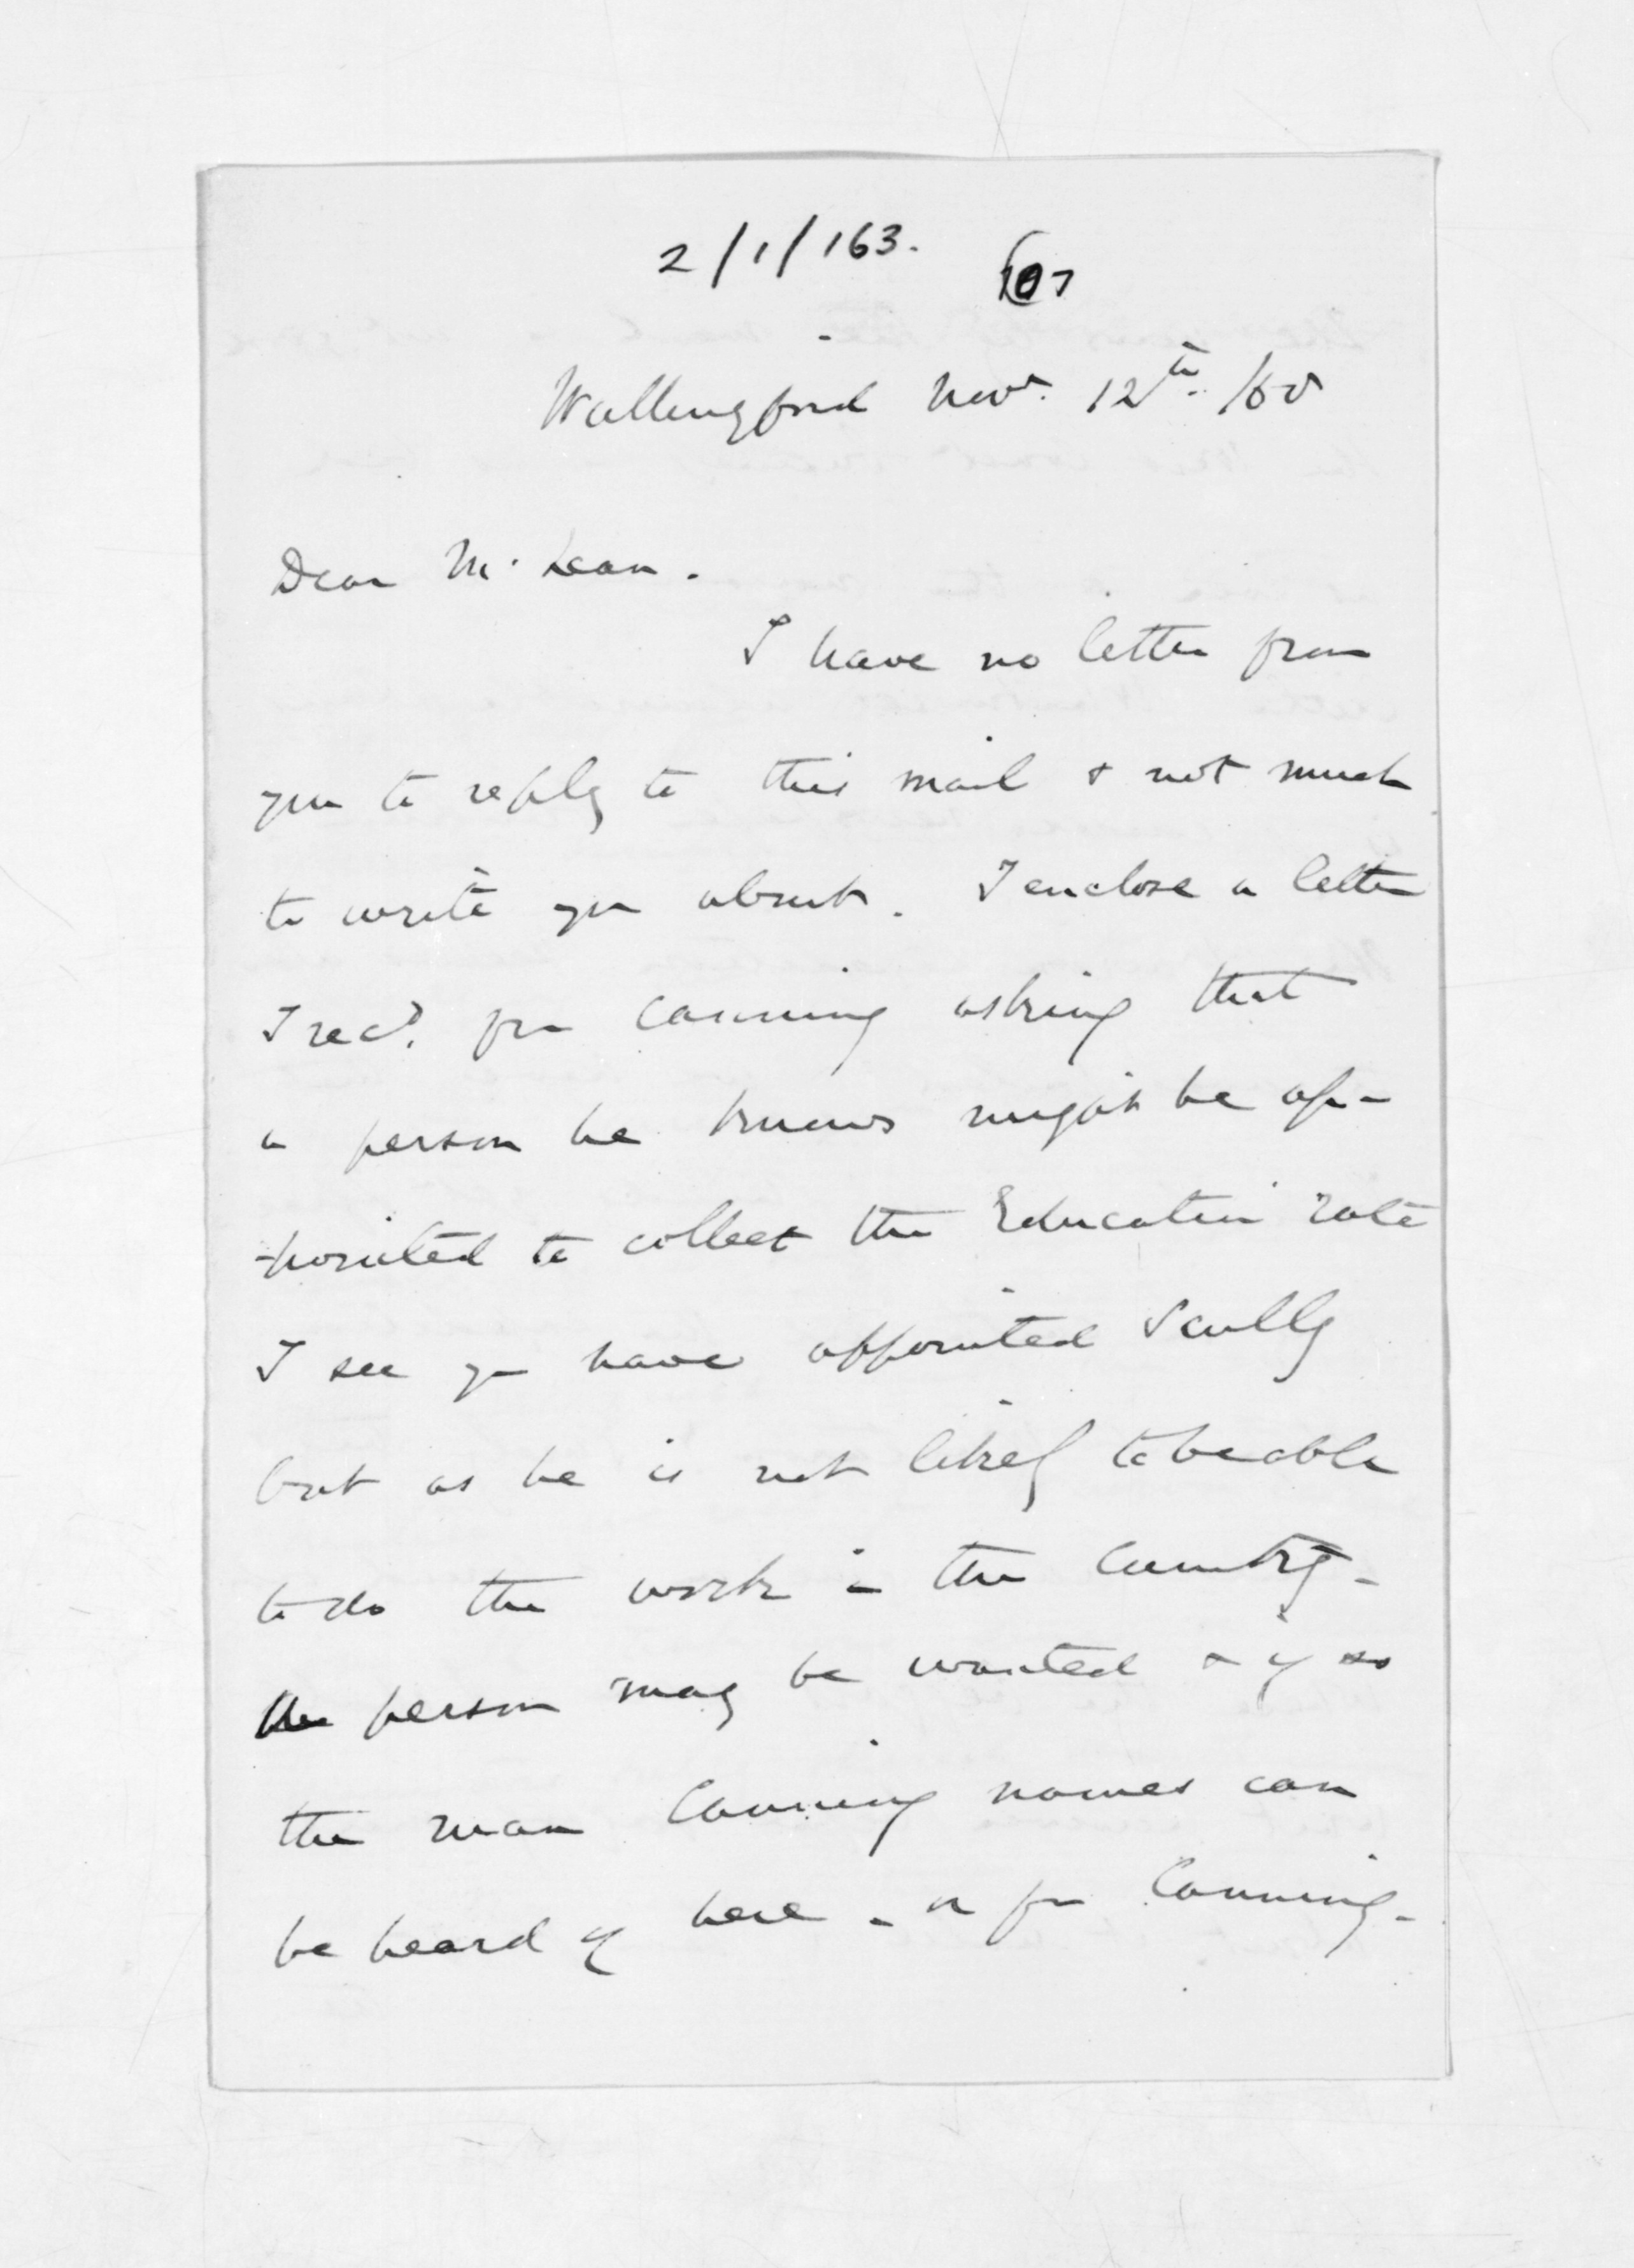 2/1/163.
107
Wallingford Nov. 12th. /68
Dear McLean.
I have no letter from
you to reply to this mail & not much
to write you about. I enclose a letter
I recd. from Canning asking that
a person he knows might be ap-
-pointed to collect the Education rate
I see you have appointed Scully
but as he is not likely to be able
to do the work in the Country -
person may be wanted & if so
the man Canning names can
be heard of here - or from Canning -